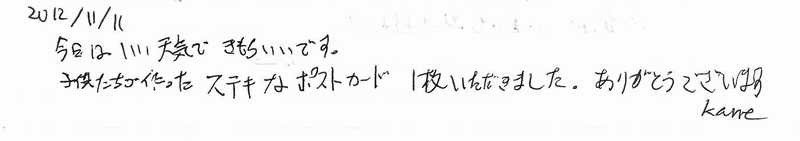 2012/11/11
今日は いい 天気で きもちいいです。
子供たちが作った ステキな ポストカード 1枚いただきました。ありがとうございます